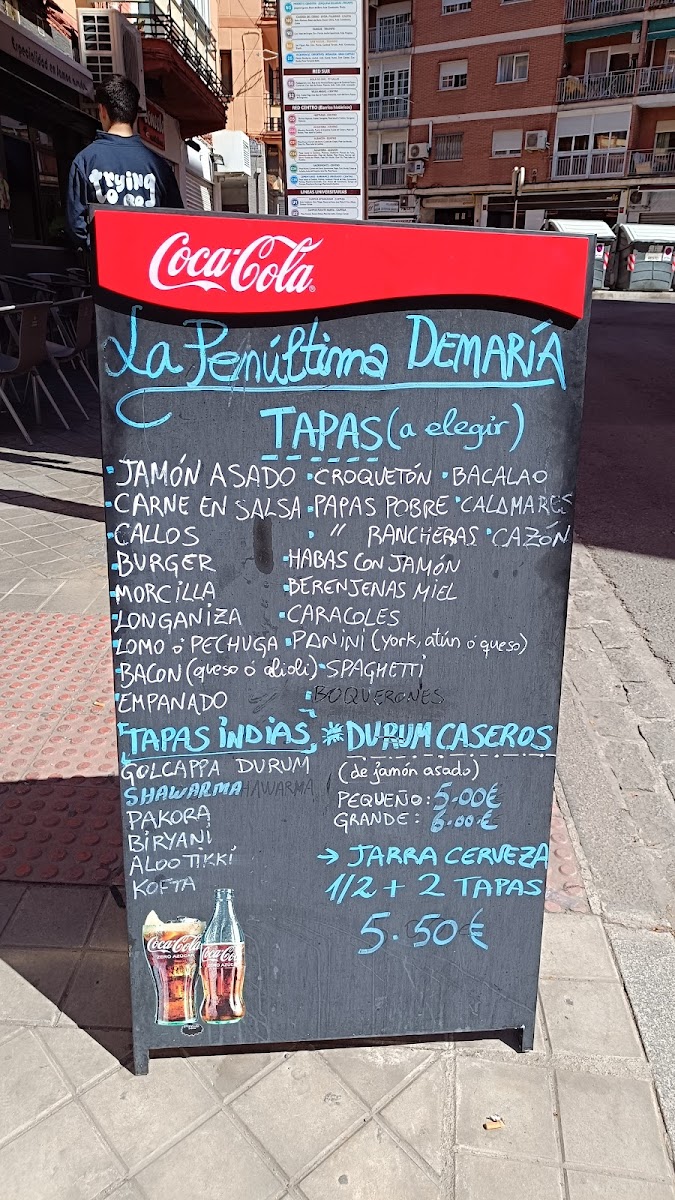 Especialidad en
trying
RED SUR
RED CENTRO (Barrios históricos)
LÍNEAS UNIVERSITARIAS
Coca-Cola
La Penúltima DEMARÍA
TAPAS (a elegir)
JAMÓN ASADO
CARNE EN SALSA
CALLOS
BURGER
MORCILLA
LONGANIZA
LOMO ó PECHUGA
BACON (queso ó alioli)
EMPANADO
CROQUETÓN
PAPAS POBRE
" RANCHERAS
HABAS CON JAMÓN
BERENJENAS MIEL
CARACOLES
PANINI (york, atún ó queso)
SPAGHETTI
BOQUERONES
BACALAO
CALAMARES
CAZÓN
TAPAS INDIAS
GOLCAPPA DURUM
SHAWARMA
PAKORA
BIRYANI
ALOO TIKKI
KOFTA
DURUM CASEROS
(de jamón asado)
PEQUEÑO: 5.00€
GRANDE: 6.00€
→ JARRA CERVEZA
1/2 + 2 TAPAS
5.50€
Coca-Cola
ZERO AZÚCAR
Coca-Cola